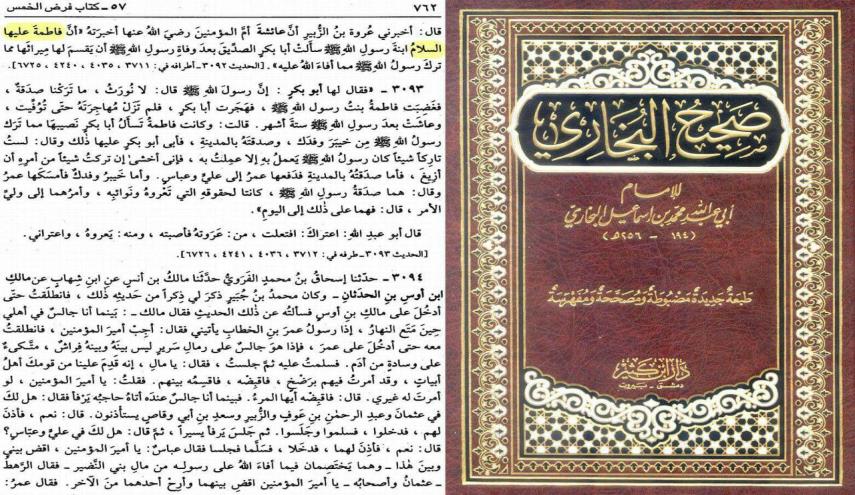 ٧٦٢ ٥٧ - كتاب فرض الخمس
قال: أخبرني عُروة بنُ الزُّبيرِ أن عائشةَ أمَّ المؤمنين رضيَ اللهُ عنها أخبرَتهُ «أنَّ فاطمةَ عليها
السلامُ ابنةَ رسولِ اللهِ ﷺ سألتْ أبا بكرٍ الصدِّيقَ بعدَ وفاةِ رسولِ اللهِ ﷺ أن يَقسِمَ لها مِيراثَها مما
تركَ رسولُ اللهِ ﷺ مما أفاءَ اللهُ عليه». [الحديث ٣٠٩٢ - أطرافه في: ٣٧١١ ، ٤٠٣٥ ، ٤٢٤٠ ، ٦٧٢٥].
٣٠٩٣ - «فقال لها أبو بكرٍ : إنَّ رسولَ اللهِ ﷺ قال: لا نُورَثُ ، ما تَرَكْنا صَدَقةٌ ،
فغَضِبَت فاطمةُ بنتُ رسولِ اللهِ ﷺ ، فهَجَرت أبا بكرٍ ، فلم تَزَلْ مُهاجِرَتَهُ حتى تُوُفِّيت ،
وعاشَتْ بعدَ رسولِ اللهِ ﷺ ستةَ أشهرٍ. قالت: وكانت فاطمةُ تَسألُ أبا بكرٍ نَصِيبَها مما تَرَكَ
رسولُ اللهِ ﷺ مِن خيبَرَ وفَدَك ، وصدقَتَهُ بالمدينةِ ، فأبى أبو بكرٍ عليها ذلكَ وقال: لستُ
تاركاً شيئاً كان رسولُ اللهِ ﷺ يَعملُ بهِ إلا عمِلتُ به ، فإنِّي أخشىٰ إن تركتُ شيئاً من أمرِهِ أن
أزِيغَ ، فأما صدَقَتُهُ بالمدينةِ فدفعَها عمرُ إلى عليٍّ وعباسٍ. وأما خيبرُ وفدكُ فأمسَكَها عمرُ
وقال: هما صدَقةُ رسولِ اللهِ ﷺ ، كانتا لحقوقهِ التي تَعْروهُ ونَوائبِه ، وأمرُهما إلى وليِّ
الأمر ، قال: فهما على ذلكَ إلى اليومِ».
قال أبو عبدِ اللهِ: اعتراكَ: افتعلت ، من: عَرَوتهُ فأصبته ، ومنه: يَعروهُ ، واعتراني.
[الحديث ٣٠٩٣ - طرفه في: ٣٧١٢ ، ٤٠٣٦ ، ٤٢٤١ ، ٦٧٢٦].
٣٠٩٤ - حدّثنا إسحاقُ بنُ محمدٍ الفَرويُّ حدَّثنا مالكُ بن أنسٍ عنِ ابنِ شهابٍ عن مالكِ
ابن أوسِ بنِ الحدَثانِ - وكان محمدُ بنُ جُبَيرٍ ذكرَ لي ذِكراً من حَديثهِ ذلك ، فانطلَقتُ حتّى
أدخُلَ على مالكِ بنِ أوسٍ فسألتُه عن ذلكَ الحديثِ فقال مالك -: بَينما أنا جالسٌ في أهلي
حِينَ مَتَعَ النهارُ ، إذا رسولُ عمرَ بنِ الخطابِ يأتيني فقال: أجِبْ أميرَ المؤمنين ، فانطلقتُ
معه حتى أدخُلَ على عمرَ ، فإذا هوَ جالسٌ على رِمالِ سَرِيرٍ ليس بينَهُ وبينَهُ فِراشٌ ، متَّكىءٌ
على وِسادةٍ من أدَمٍ. فسلَّمتُ عليه ثمَّ جلستُ ، فقال: يا مالِ ، إنه قَدِمَ علينا من قومِكَ أهلُ
أبياتٍ ، وقد أمرتُ فيهم برَضْخٍ ، فاقبِضْه ، فاقسِمْه بينهم. فقلتُ: يا أميرَ المؤمنين ، لو
أمرتَ له غيري. قال: فاقبِضْه أيها المرءُ. فبينما أنا جالسٌ عندَه أتاهُ حاجبُه يَرْفا فقال: هل لكَ
في عثمانَ وعبدِ الرحمٰنِ بنِ عَوفٍ والزُّبيرِ وسعدِ بنِ أبي وقاصٍ يستأذنون. قال: نعم ، فأذِنَ
لهم ، فدخلوا ، فسلموا وجَلَسوا. ثم جلَسَ يَرفا يسيراً ، ثمَّ قال: هل لكَ في عليٍّ وعبّاس؟
قال: نعم ، فأذِنَ لهما ، فدَخَلا ، فسَلَّما فجلسا فقال عباسٌ: يا أميرَ المؤمنين ، اقضِ بيني
وبينَ هٰذا - وهما يَختَصِمان فيما أفاءَ اللهُ على رسولِه من مالِ بني النَّضير - فقال الرَّهطُ
- عثمانُ وأصحابُه - يا أميرَ المؤمنين اقضِ بينهما وأرِحْ أحدَهما منَ الآخر. فقال عمرُ:
صَحِيحُ البُخَارِي
للإمام
أبي عبد الله محمد بن إسماعيل البخاري
(١٩٤ - ٢٥٦هـ)
طبعة جديدة مضبوطة ومصححة ومفهرسة
دار ابن كثير
دمشق - بيروت